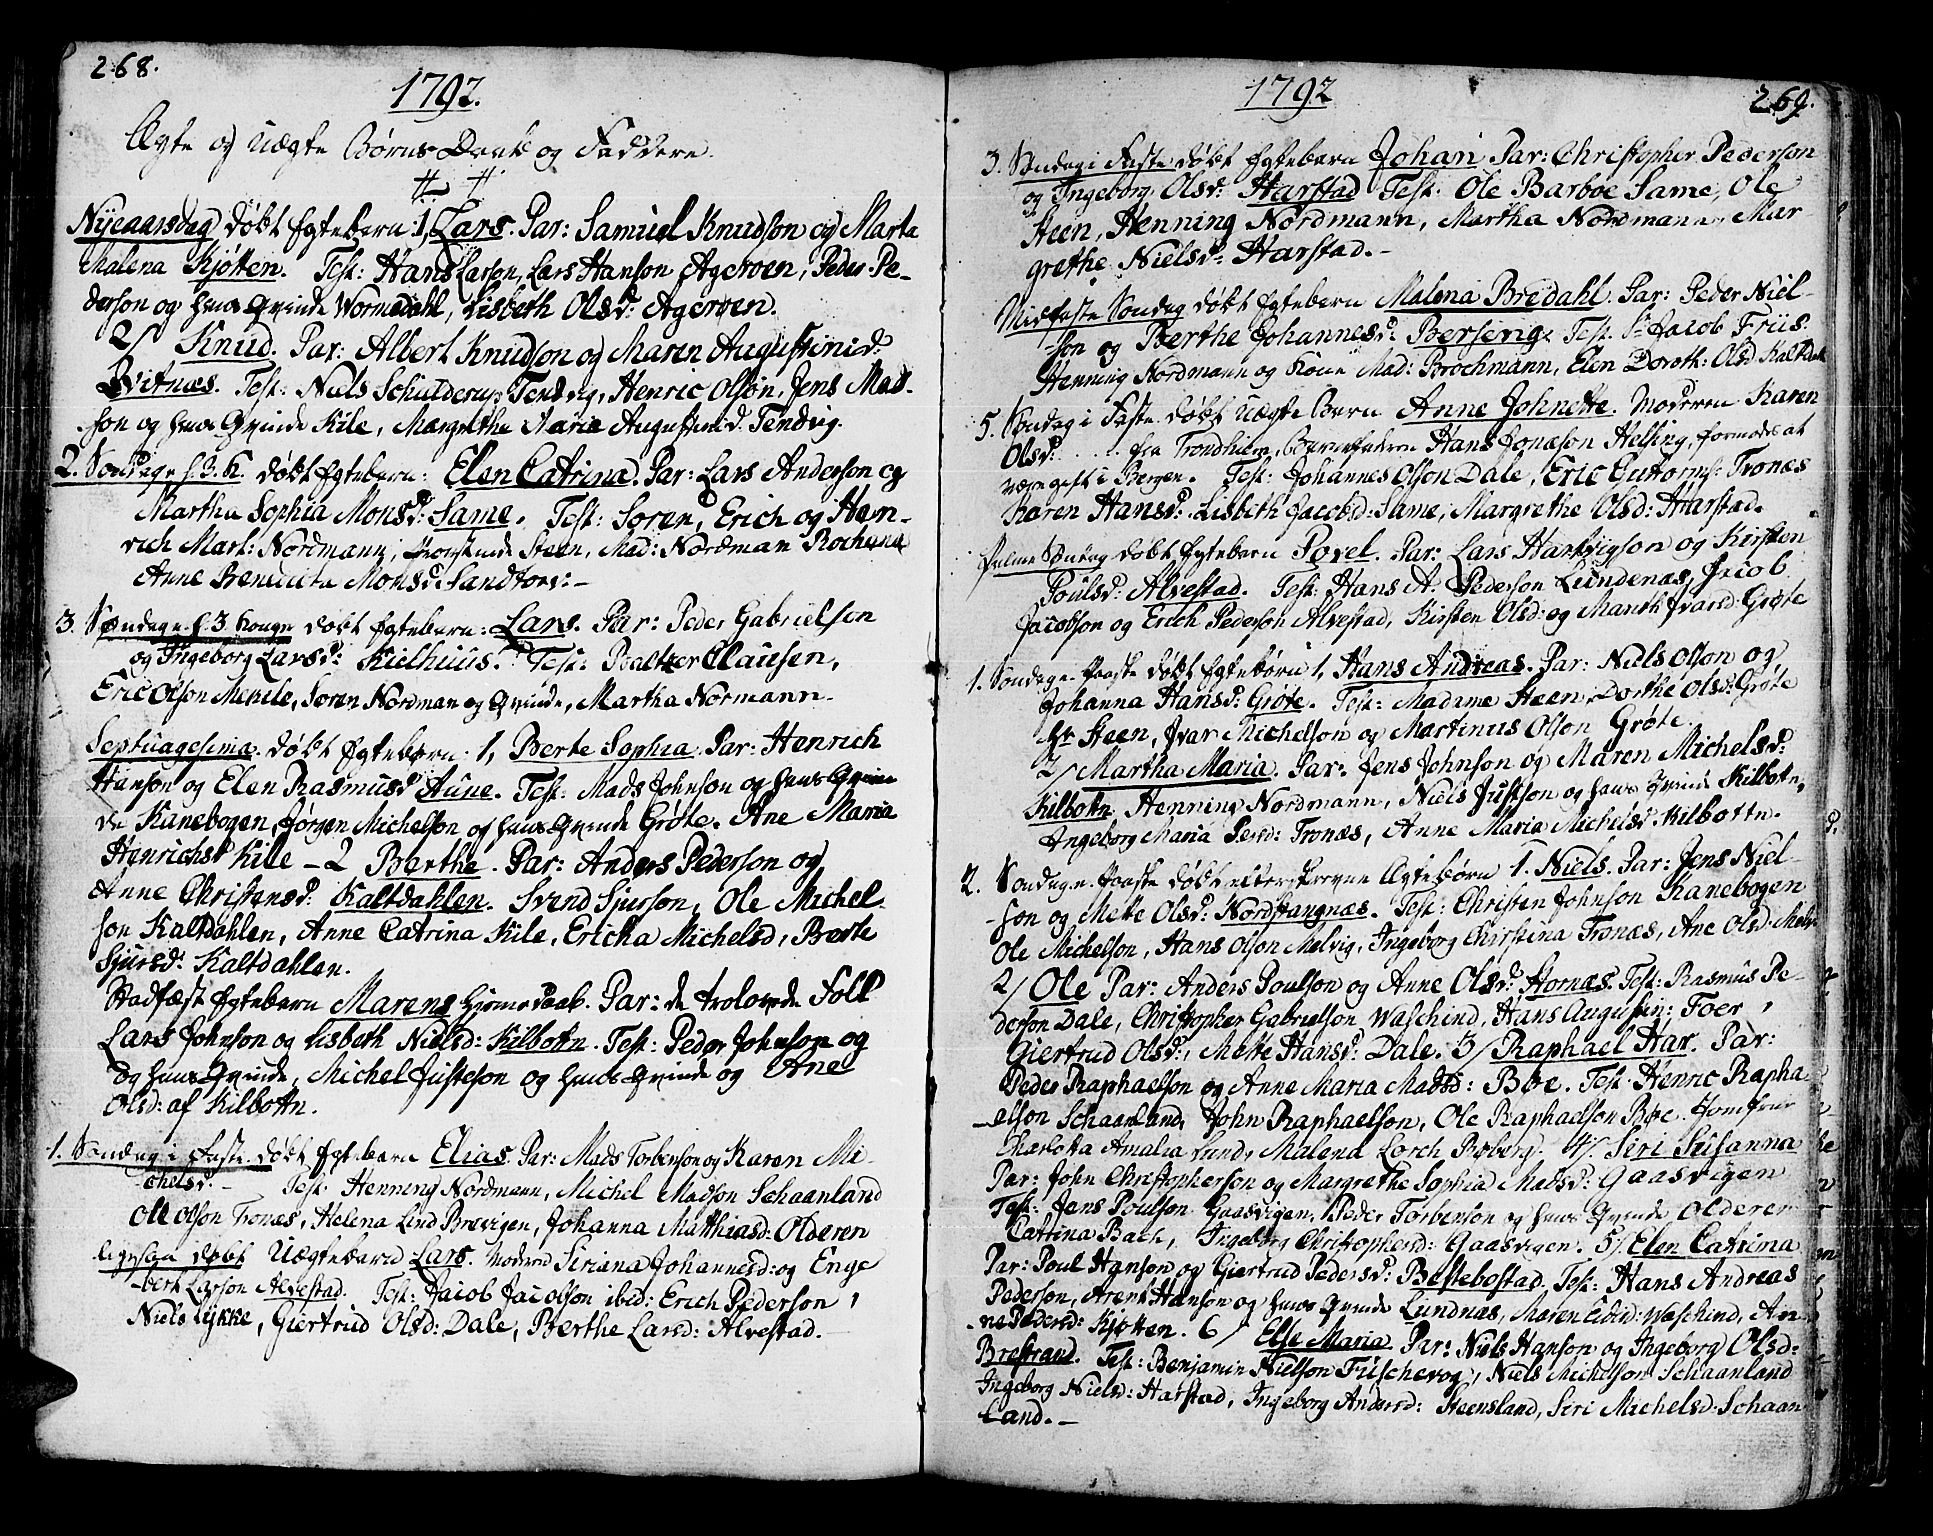 268.
1792.
Ægte og Uægte Børns Daab og Faddere.
Nyeaarsdag døbt Egtebørn 1, Lars. Par: Samuel Knudson og Marta
Malena Kjøtten. Test: Hans Larson, Lars Hanson Ageroen, Peder Pe-
derson og hans Qvinde Wormedahl, Lisbeth Olsd: Ageroen.
2/ Knud. Par: Albert Knudson og Maren Augustinid:
Qvitnæs. Test: Niels Schulderup Tendvig, Henric Olson, Jens Mad-
son og hans Qvinde Kile, Margrethe Maria Augustinid. Tendvig.
2. Søndag e. h. 3. K. døbt Egtebarn: Elen Catrina. Par: Lars Anderson og
Martha Sophia Monsd: Same. Test: Soren, Erich og Hen-
rich Mart: Nordmann, Steen, Mad: Nordman
Anne Monsd. Sandtorv:-
3. Søndag e. h. 3 Konge døbt Egtebarn: Lars. Par: Peder Gabrielson
og Ingeborg Larsd: Kielhuus. Test: Baltzer Clausen,
Eric Olson Mekile, Soren Nordman og Qvinde, Martha Normann.
Septuagesima døbt Egtebørn: 1, Berte Sophia. Par: Henrich
Hanson og Elen Rasmusd Aune. Test: Mads Johnson og hans Qvin-
de Kanebogen, Jørgen Michelson og hans Qvinde Grøte. Ane Maria
Henrichsd Kile - 2 Berthe. Par: Anders Pederson og
Anne Christensd: Kaltdahlen. Svend Sjurson, Ole Michel-
son Kaltdahlen, Anne Catrina Kile, Ericka Michelsd, Berte
Sjursd: Kaltdahlen.
Stadfæst Egtebarn Marens hjemedaab. Par: de trolovede Folk
Lars Johnson og Lisbeth Nielsd: Kilbotn. Test: Peder Johnson og
og hans Qvinde, Michel Justeson og hans Qvinde og Ane
Olsd: af Kilbotn.
1. Søndag i Faste døbt Egtebarn Elias Par: Mads Torbenson og Karen Mi-
chelsd: - Test: Henning Nordmann, Michel Madson Schaanland
Ole Olson Tronæs, Helena Lind Brevigen, Johanna Matthiasd: Olderen
ligesaa døbt Uægtebarn Lars. Moderen Siriana Johannesd: og Enge
bert Larson Alvestad. Test: Jacob Jacobson ibid: Erich Pederson,
Niels Lykke, Giertrud Olsd: Dale, Berthe Larsd: Alvestad.
1792
269.
3. Søndag i Faste døbt Egtebarn Johan Par: Christopher Pederson
og Ingeborg Olsd: Harstad Test: Ole Barboe Same, Ole
Steen, Henning Nordmann, Martha Nordmann, Mar-
grethe Nielsd: Harstad.-
Midfaste Søndag døbt Egtebarn Malena Bredahl. Par: Peder Niel-
son og Berthe Johannesd: Berseng. Test: Sr Jacob Friis
Henning Nordmann og Kone Mad: Brochmann, Elen Doroth: Olsd Kaltdal
5. Søndag i Faste døbt Uægte Barn Anne Johnette. Moderen Karen
Olsd: . . . . . fra Trondhiem, Barnefaderen Hans Jonæson Helsing, formodes at
være gift i Bergen. Test: Johannes Olson Dale, Eric Guttorms: Tronæs
Karen Hansd: Lisbeth Jacobd: Same, Margrethe Olsd: Harstad.
Palme Søndag døbt Egtebarn Povel. Par: Lars Hartvigson og Kirsten
Poulsd: Alvestad. Test: Hans A. Pederson Lundenæs, Jacob
Jacobson og Erich Pederson Alvestad, Kirsten Olsd: og Marith Ivarsd: Grøte
1. Søndag e. Paaske døbt Egtebørn 1, Hans Andreas. Par: Niels Olson og
Johanna Hansd: Grøte. Test: Madame Steen, Dorthe Olsd: Grøte
Hr Steen, Ivar Michelson og Martinus Olson Grøte.
2/ Martha Maria. Par: Jens Johnson og Maren Michelsd:
Kilbotn. Henning Nordmann, Niels Justson og hans Qvinde Kilbotn,
Ingeborg Maria Persd: Tronæs, Anne Maria Michelsd Kilbottn.
2. Søndag e. Paaske døbt efterskrevne Ægtebørn 1. Niels. Par: Jens Niel-
son og Mette Olsd: Nordstangnæs. Test: Christen Johnson Kanebogen
Ole Michelson, Hans Olson Melvig, Ingeborg Chirstina Tronæs, Ane Olsd: Melv
2/ Ole Par: Anders Poulson og Anne Olsd: Stornæs. Test: Rasmus Pe-
derson Dale, Christopher Gabrielson Waschind, Hans Augustin: Foer,
Giertrud Olsd:, Mette Hansd: Dale. 3/ Raphael Har. Par:
Peder Raphaelson og Anne Maria Madsd: Bøe. Test: Henric Rapha
elson Schaanland, John Raphaelson, Ole Raphaelson Bøe. Jomfrue
Charlotta Amalia Lund, Malena Lorch Broberg. 4/ Siri Susanna
Par: John Christopherson og Margrethe Sophia Madsd: Gaasvigen
Test: Jens Poulson Gaasvigen, Peder Torbenson og hans Qvinde Olderen
Catrina Bach, Ingeborg Christophersd: Gaasvigen. 5/ Elen Catrina
Par: Poul Hanson og Giertrud Pedersd: Bestebostad. Test: Hans Andreas
Pederson, Arent Hanson og hans Qvinde Lundnæs, Maren Eidid: Waschind, An-
ne Pedersd: Kjøtten. 6/ Else Maria. Par: Niels Hanson og Ingeborg Olsd:
Brestrand. Test: Benjamin Nielson Fuschevog, Niels Michelson Schaanland
Ingeborg Nielsd: Harstad, Ingeborg Andersd: Steensland, Siri Michelsd: Schaan
land.-